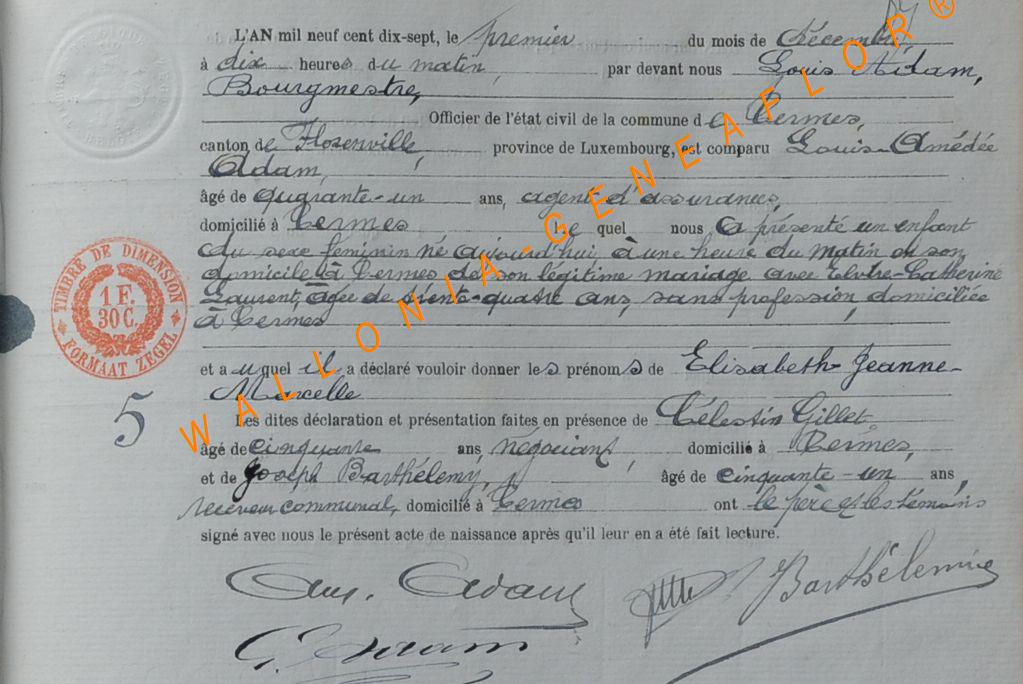 L'AN mil neuf cent dix-sept, le premier du mois de décembre,
à dix heures du matin, par devant nous Louis Adam,
Bourgmestre,
Officier de l'état civil de la commune de Termes,
canton de Florenville, province de Luxembourg, est comparu Louis-Amédée
Adam,
âgé de quarante-un ans, agent d'assurances,
domicilié à Termes lequel nous a présenté un enfant
du sexe féminin né aujourd'hui, à une heure du matin en son
domicile à Termes de son légitime mariage avec Elvire-Catherine
Laurent, âgée de trente-quatre ans, sans profession, domiciliée
à Termes
et auquel il a déclaré vouloir donner les prénoms de Elisabeth-Jeanne-
Marcelle
Les dites déclaration et présentation faites en présence de Célestin Gillet
âgé de cinquante ans négociant, domicilié à Termes,
et de Joseph Barthélemy, âgé de cinquante-un ans,
receveur communal, domicilié à Termes ont le père et les témoins
signé avec nous le présent acte de naissance après qu'il leur en a été fait lecture.
Am. Adam
Barthélemy
L. Adam
TIMBRE DE DIMENSION
1 F.
30 C.
FORMAAT ZEGEL
5
WALLONIA-GENEAFLOR®